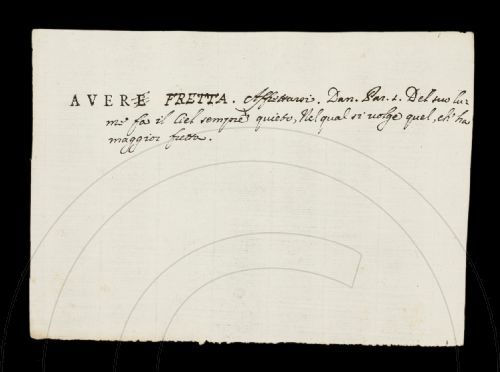 AVERE FRETTA. Affrettarsi. Dan. Par. 1. Del suo lu-
me fa il Ciel sempre quieto, Nel qual si volge quel, ch' ha
maggior fretta.